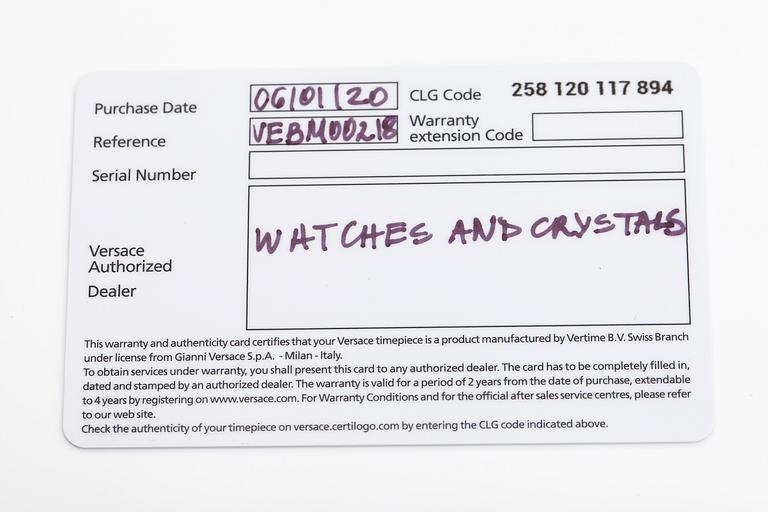 Purchase Date 06/01/20 CLG Code 258 120 117 894
Reference VEBM00218 Warranty extension Code
Serial Number
WATCHES AND CRYSTALS
Versace
Authorized
Dealer
This warranty and authenticity card certifies that your Versace timepiece is a product manufactured by Vertime B.V. Swiss Branch
under license from Gianni Versace S.p.A. - Milan - Italy.
To obtain services under warranty, you shall present this card to any authorized dealer. The card has to be completely filled in,
dated and stamped by an authorized dealer. The warranty is valid for a period of 2 years from the date of purchase, extendable
to 4 years by registering on www.versace.com. For Warranty Conditions and for the official after sales service centres, please refer
to our web site.
Check the authenticity of your timepiece on versace.certilogo.com by entering the CLG code indicated above.